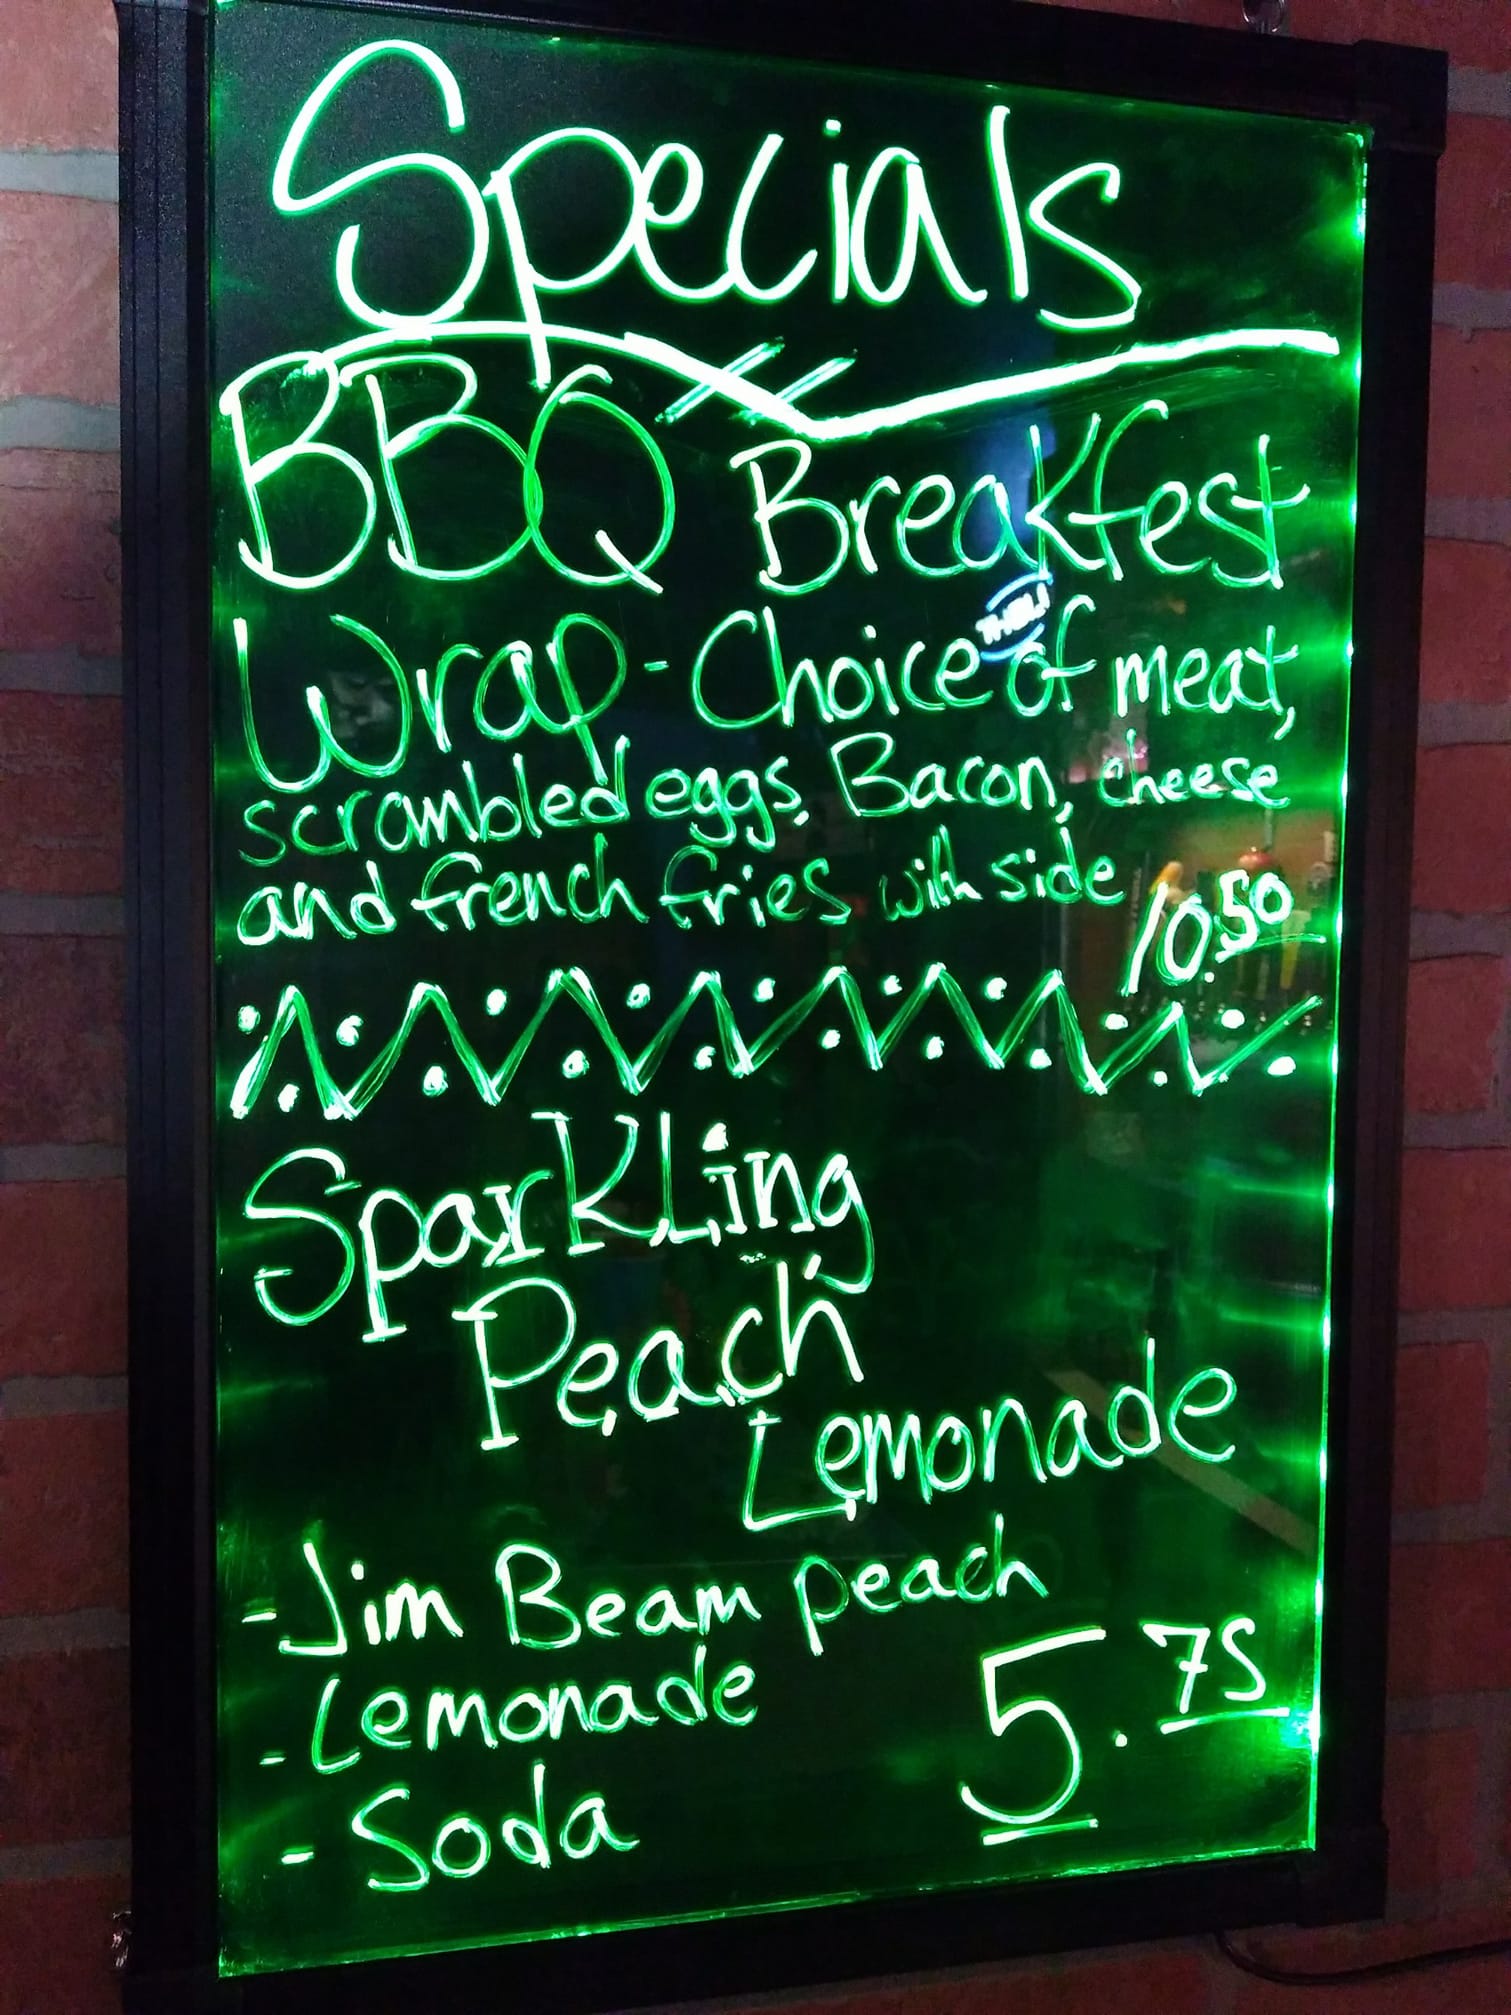 Specials
BBQ Breakfest
Wrap - Choice of meat,
scrambled eggs, Bacon, cheese
and french fries with side
10.50
Sparkling
Peach
Lemonade
- Jim Beam peach
- Lemonade
- Soda
5.75